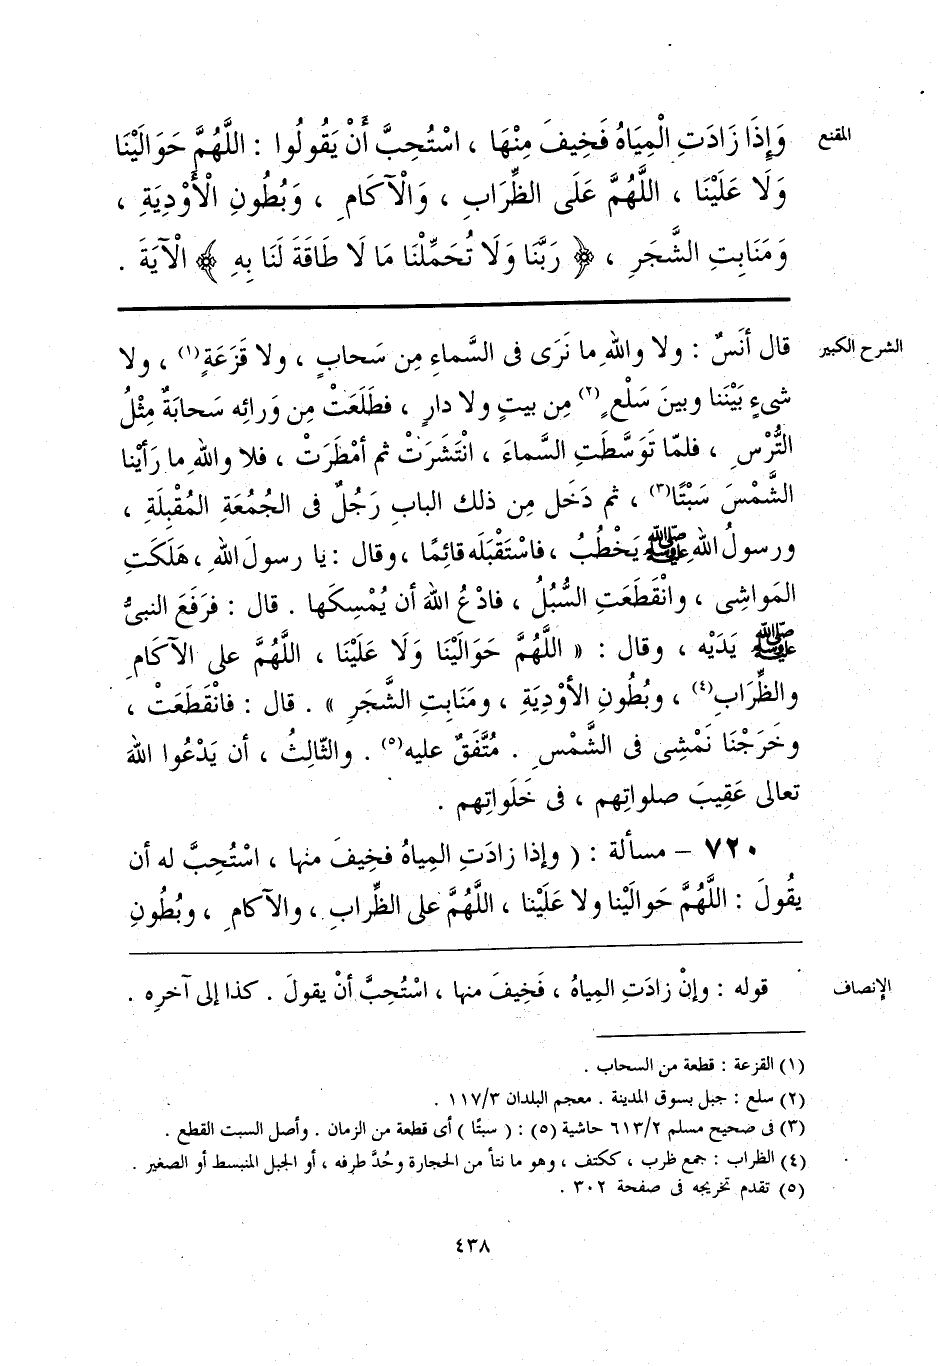 المقنع
وَإِذَا زَادَتِ الْمِيَاهُ فَخِيفَ مِنْهَا ، اسْتُحِبَّ أَنْ يَقُولُوا : اللَّهُمَّ حَوَالَيْنَا
وَلَا عَلَيْنَا ، اللَّهُمَّ عَلَى الظِّرَابِ ، وَالْآكَامِ ، وَبُطُونِ الْأَوْدِيَةِ ،
وَمَنَابِتِ الشَّجَرِ ، ﴿ رَبَّنَا وَلَا تُحَمِّلْنَا مَا لَا طَاقَةَ لَنَا بِهِ ﴾ الْآيَةَ .
الشرح الكبير
قال أنَسٌ : ولا واللهِ ما نَرَى فى السَّماءِ مِن سَحابٍ ، ولا قَزَعَةٍ(١) ، ولا
شىءٍ بَيْنَنا وبينَ سَلْعٍ(٢) مِن بيتٍ ولا دارٍ ، فطَلَعَتْ مِن وَرائِه سَحابَةٌ مِثْلُ
التُّرْسِ ، فلمّا تَوَسَّطَتِ السَّماءَ ، انْتَشَرَتْ ثم أمْطَرَتْ ، فلا واللهِ ما رَأيْنا
الشَّمْسَ سَبْتًا(٣) ، ثم دَخَل مِن ذلك البابِ رَجُلٌ فى الجُمُعَةِ المُقْبِلَةِ ،
ورسولُ اللهِ ﷺ يَخْطُبُ ، فاسْتَقْبَلَه قائِمًا ، وقال : يا رسولَ اللهِ ، هَلَكَتِ
المَواشِى ، وانْقَطَعَتِ السُّبُلُ ، فادْعُ اللهَ أن يُمْسِكَها . قال : فرَفَعَ النبىُّ
ﷺ يَدَيْه ، وقال : « اللَّهُمَّ حَوَالَيْنَا وَلَا عَلَيْنَا ، اللَّهُمَّ على الآكَامِ
والظِّرَابِ(٤) ، وبُطُونِ الأوْدِيَةِ ، ومَنَابِتِ الشَّجَرِ » . قال : فانْقَطَعَتْ ،
وخَرَجْنَا نَمْشِى فى الشَّمْسِ . مُتَّفَقٌ عليه(٥) . والثّالِثُ ، أن يَدْعُوا اللهَ
تعالى عَقِيبَ صلواتِهم ، فى خَلَواتِهم .
٧٢٠ – مسألة : ( وإذا زادَتِ المِياهُ فخِيفَ منها ، اسْتُحِبَّ له أن
يقُولَ : اللَّهُمَّ حَوالَيْنا ولا عَلَيْنا ، اللَّهُمَّ على الظِّرابِ ، والآكامِ ، وبُطُونِ
الإنصاف
قوله : وإنْ زادَتِ المِياهُ ، فَخِيفَ منها ، اسْتُحِبَّ أنْ يقولَ . كذا إلى آخرِه .
(١) القزعة : قطعة من السحاب .
(٢) سلع : جبل بسوق المدينة . معجم البلدان ١١٧/٣ .
(٣) فى صحيح مسلم ٦١٣/٢ حاشية (٥) : ( سبتًا ) أى قطعة من الزمان . وأصل السبت القطع .
(٤) الظراب : جمع ظرب ، ككتف ، وهو ما نتأ من الحجارة وحُدَّ طرفه ، أو الجبل المنبسط أو الصغير .
(٥) تقدم تخريجه فى صفحة ٣٠٢ .
٤٣٨